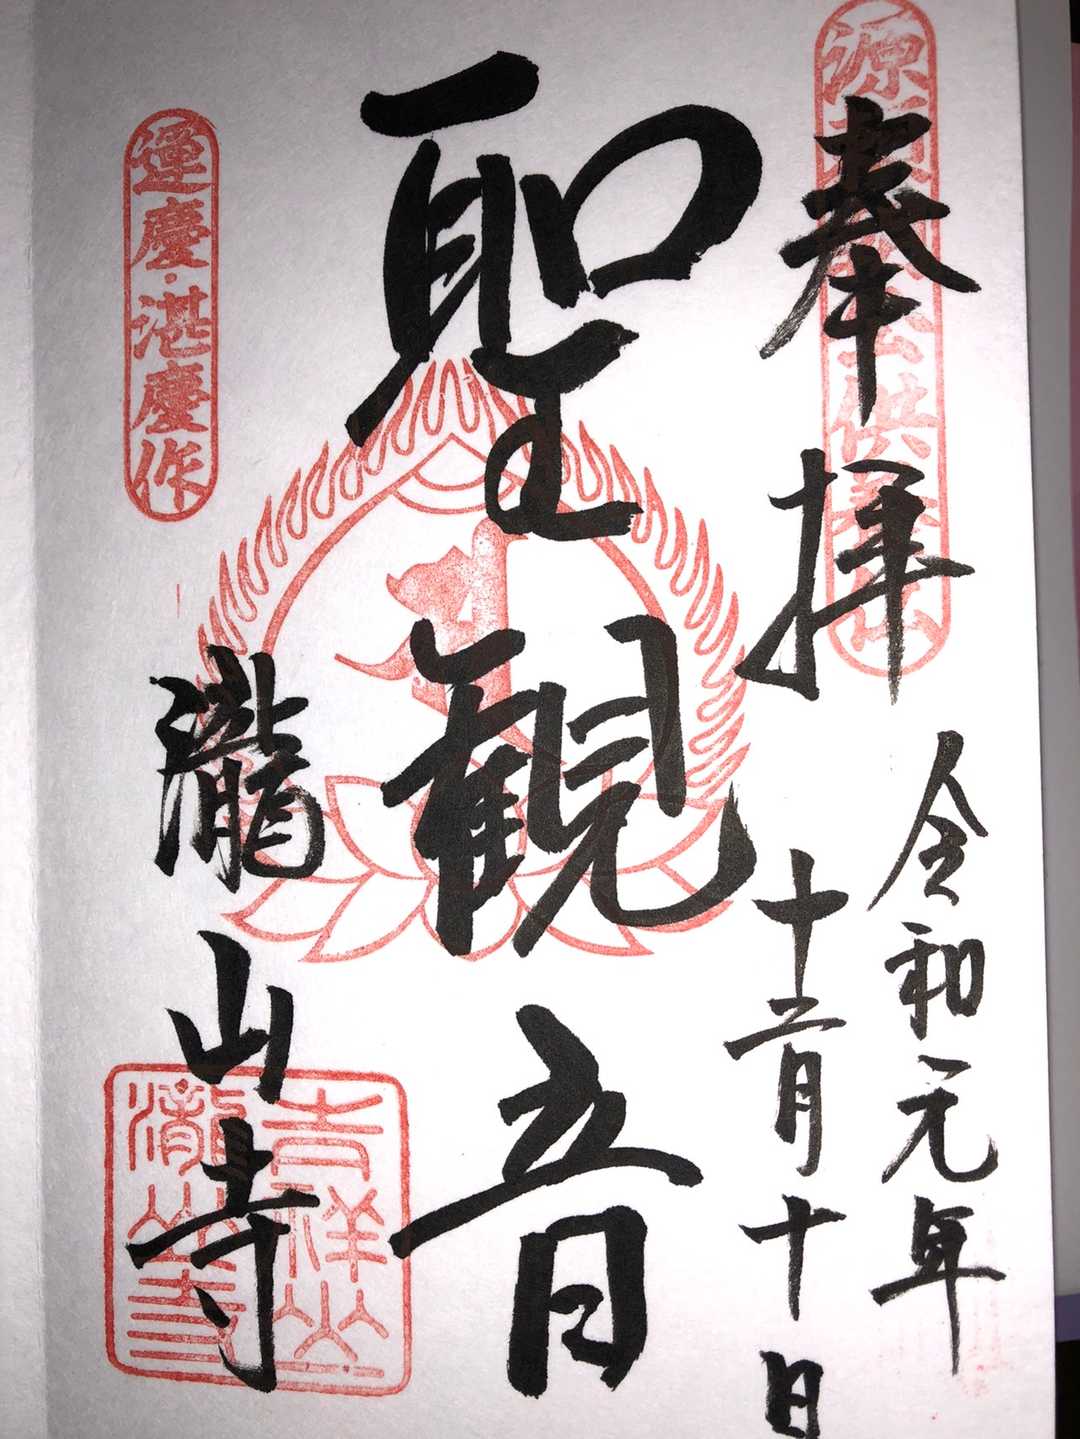 奉拝
令和元年
十二月十日
聖観音
瀧山寺
運慶・湛慶作
吉祥山
瀧山寺